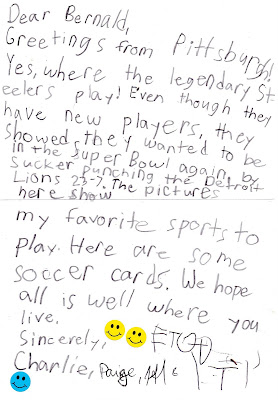 Dear Bernald,
Greetings from Pittsburgh!
Yes, where the legendary St
eelers play! Even though they
have new players, they
showed they wanted to be
in the super Bowl again, by
sucker punching the Detroit
Lions 23-7. The pictures
here show
my favorite sports to
play. Here are some
soccer cards. We hope
all is well where you
live.
Sincerely,
Charlie, Paige,